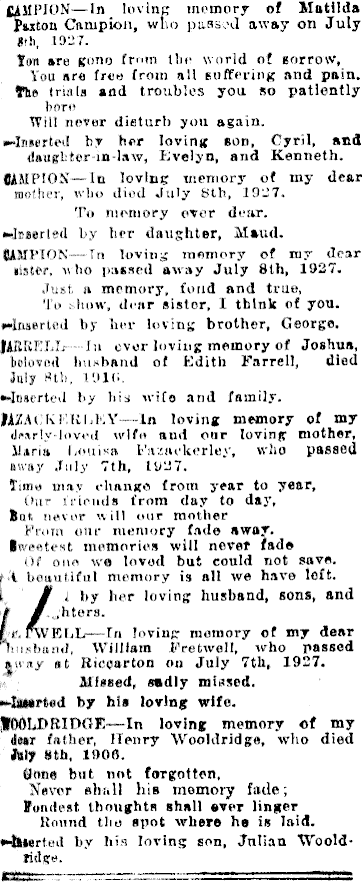 CAMPION—In loving memory of Matilda
Paxton Campion, who passed away on July
8th, 1927.
You are gone from the world of sorrow,
You are free from all suffering and pain.
The trials and troubles you so patiently
bore
Will never disturb you again.
—Inserted by her loving son, Cyril, and
daughter-in-law, Evelyn, and Kenneth.
CAMPION—In loving memory of my dear
mother, who died July 8th, 1927.
To memory ever dear.
—Inserted by her daughter, Maud.
CAMPION—In loving memory of my dear
sister, who passed away July 8th, 1927.
Just a memory, fond and true,
To show, dear sister, I think of you.
—Inserted by her loving brother, George.
FARRELL—In ever loving memory of Joshua,
beloved husband of Edith Farrell, died
July 8th, 1916.
—Inserted by his wife and family.
FAZACKERLEY—In loving memory of my
dearly-loved wife and our loving mother,
Maria Louisa Fazackerley, who passed
away July 7th, 1927.
Time may change from year to year,
Our friends from day to day,
But never will our mother
From our memory fade away.
Sweetest memories will never fade
Of one we loved but could not save.
A beautiful memory is all we have left.
by her loving husband, sons, and
ghters.
FRETWELL—In loving memory of my dear
husband, William Fretwell, who passed
away at Riccarton on July 7th, 1927.
Missed, sadly missed.
—Inserted by his loving wife.
WOOLDRIDGE—In loving memory of my
dear father, Henry Wooldridge, who died
July 8th, 1906.
Gone but not forgotten,
Never shall his memory fade;
Fondest thoughts shall ever linger
Round the spot where he is laid.
—Inserted by his loving son, Julian Woold-
ridge.